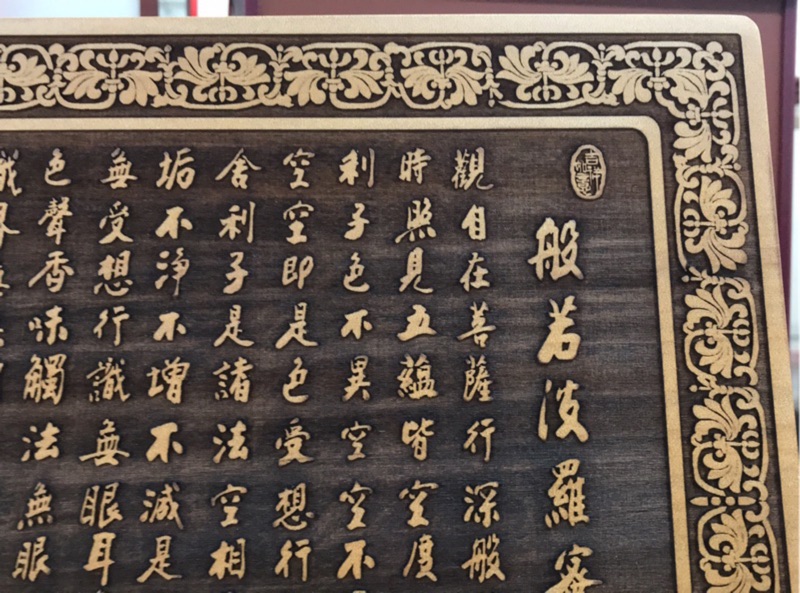 般若波羅
觀自在菩薩行深般
時照見五蘊皆空度
利子色不異空空不
空空即是色受想行
舍利子是諸法空相
垢不淨不增不減是
無受想行識無眼耳
色聲香味觸法無眼